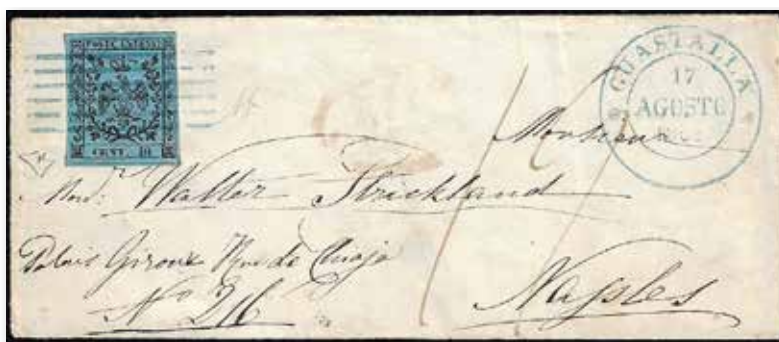 POSTE ESTENSI
CENT. 40
GUASTALLA
17
AGOSTO
Monsieur
Walter Strickland
Palais Giroux Rue de Chiaja
N° 216
Naples